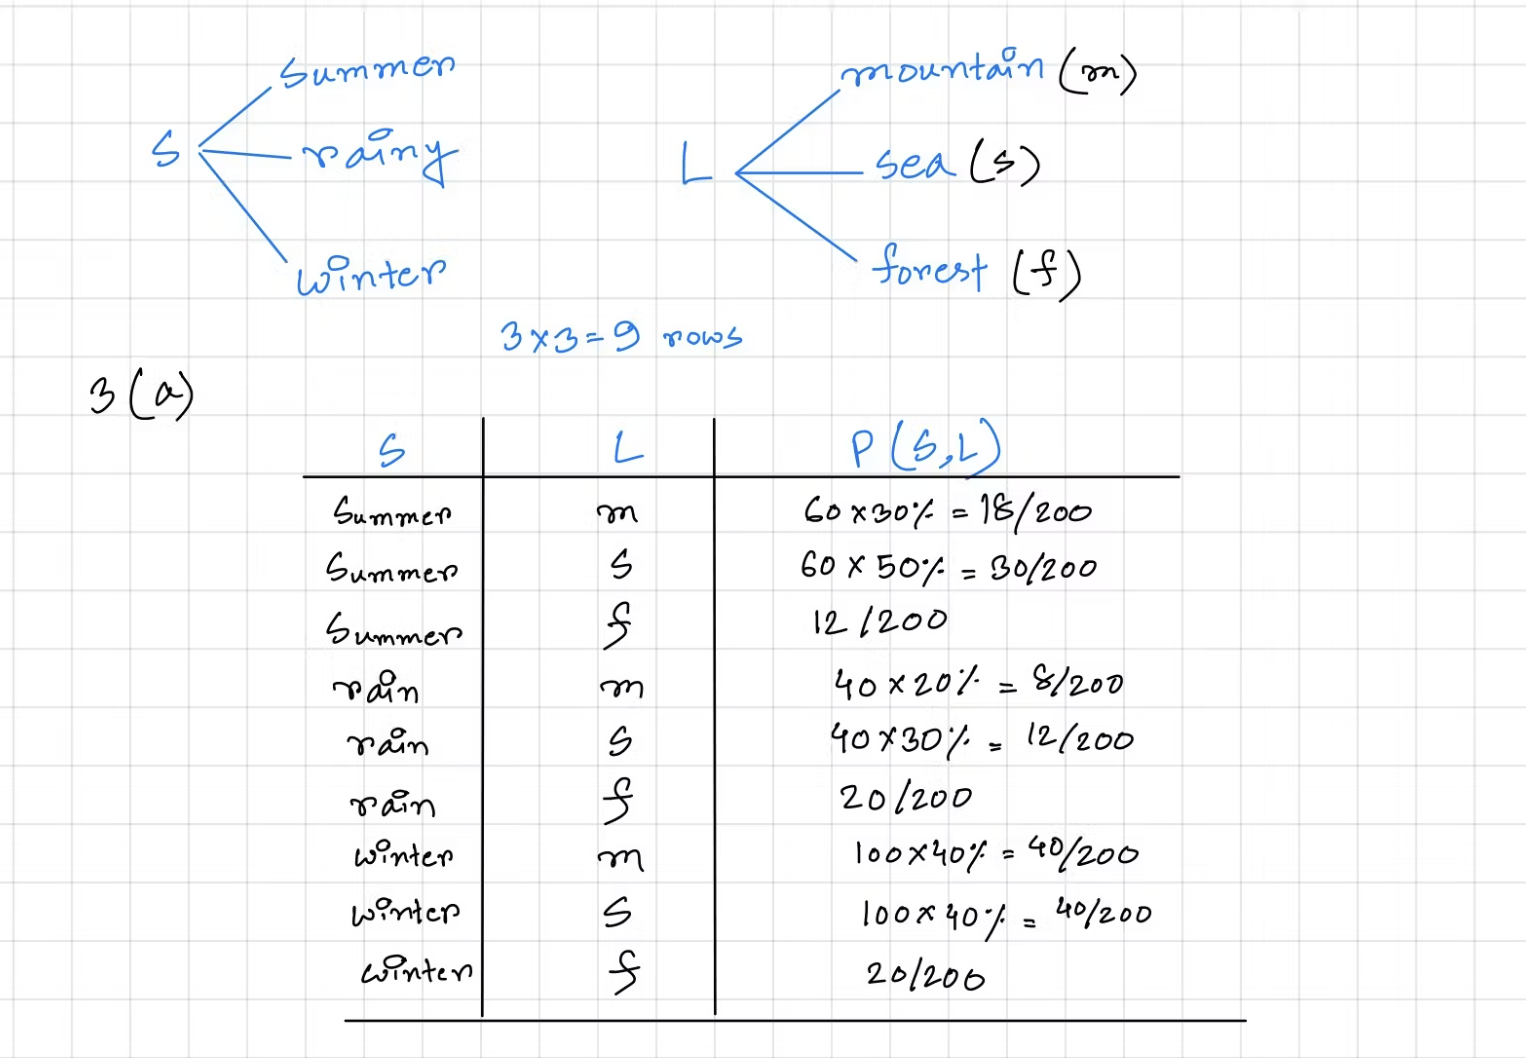 Summer
mountain (m)
S
rainy
L
sea (s)
winter
forest (f)
3×3=9 rows
3(a)
S L P(S,L)
Summer m 60×30% = 18/200
Summer s 60×50% = 30/200
Summer f 12/200
rain m 40×20% = 8/200
rain s 40×30% = 12/200
rain f 20/200
winter m 100×40% = 40/200
winter s 100×40% = 40/200
winter f 20/200